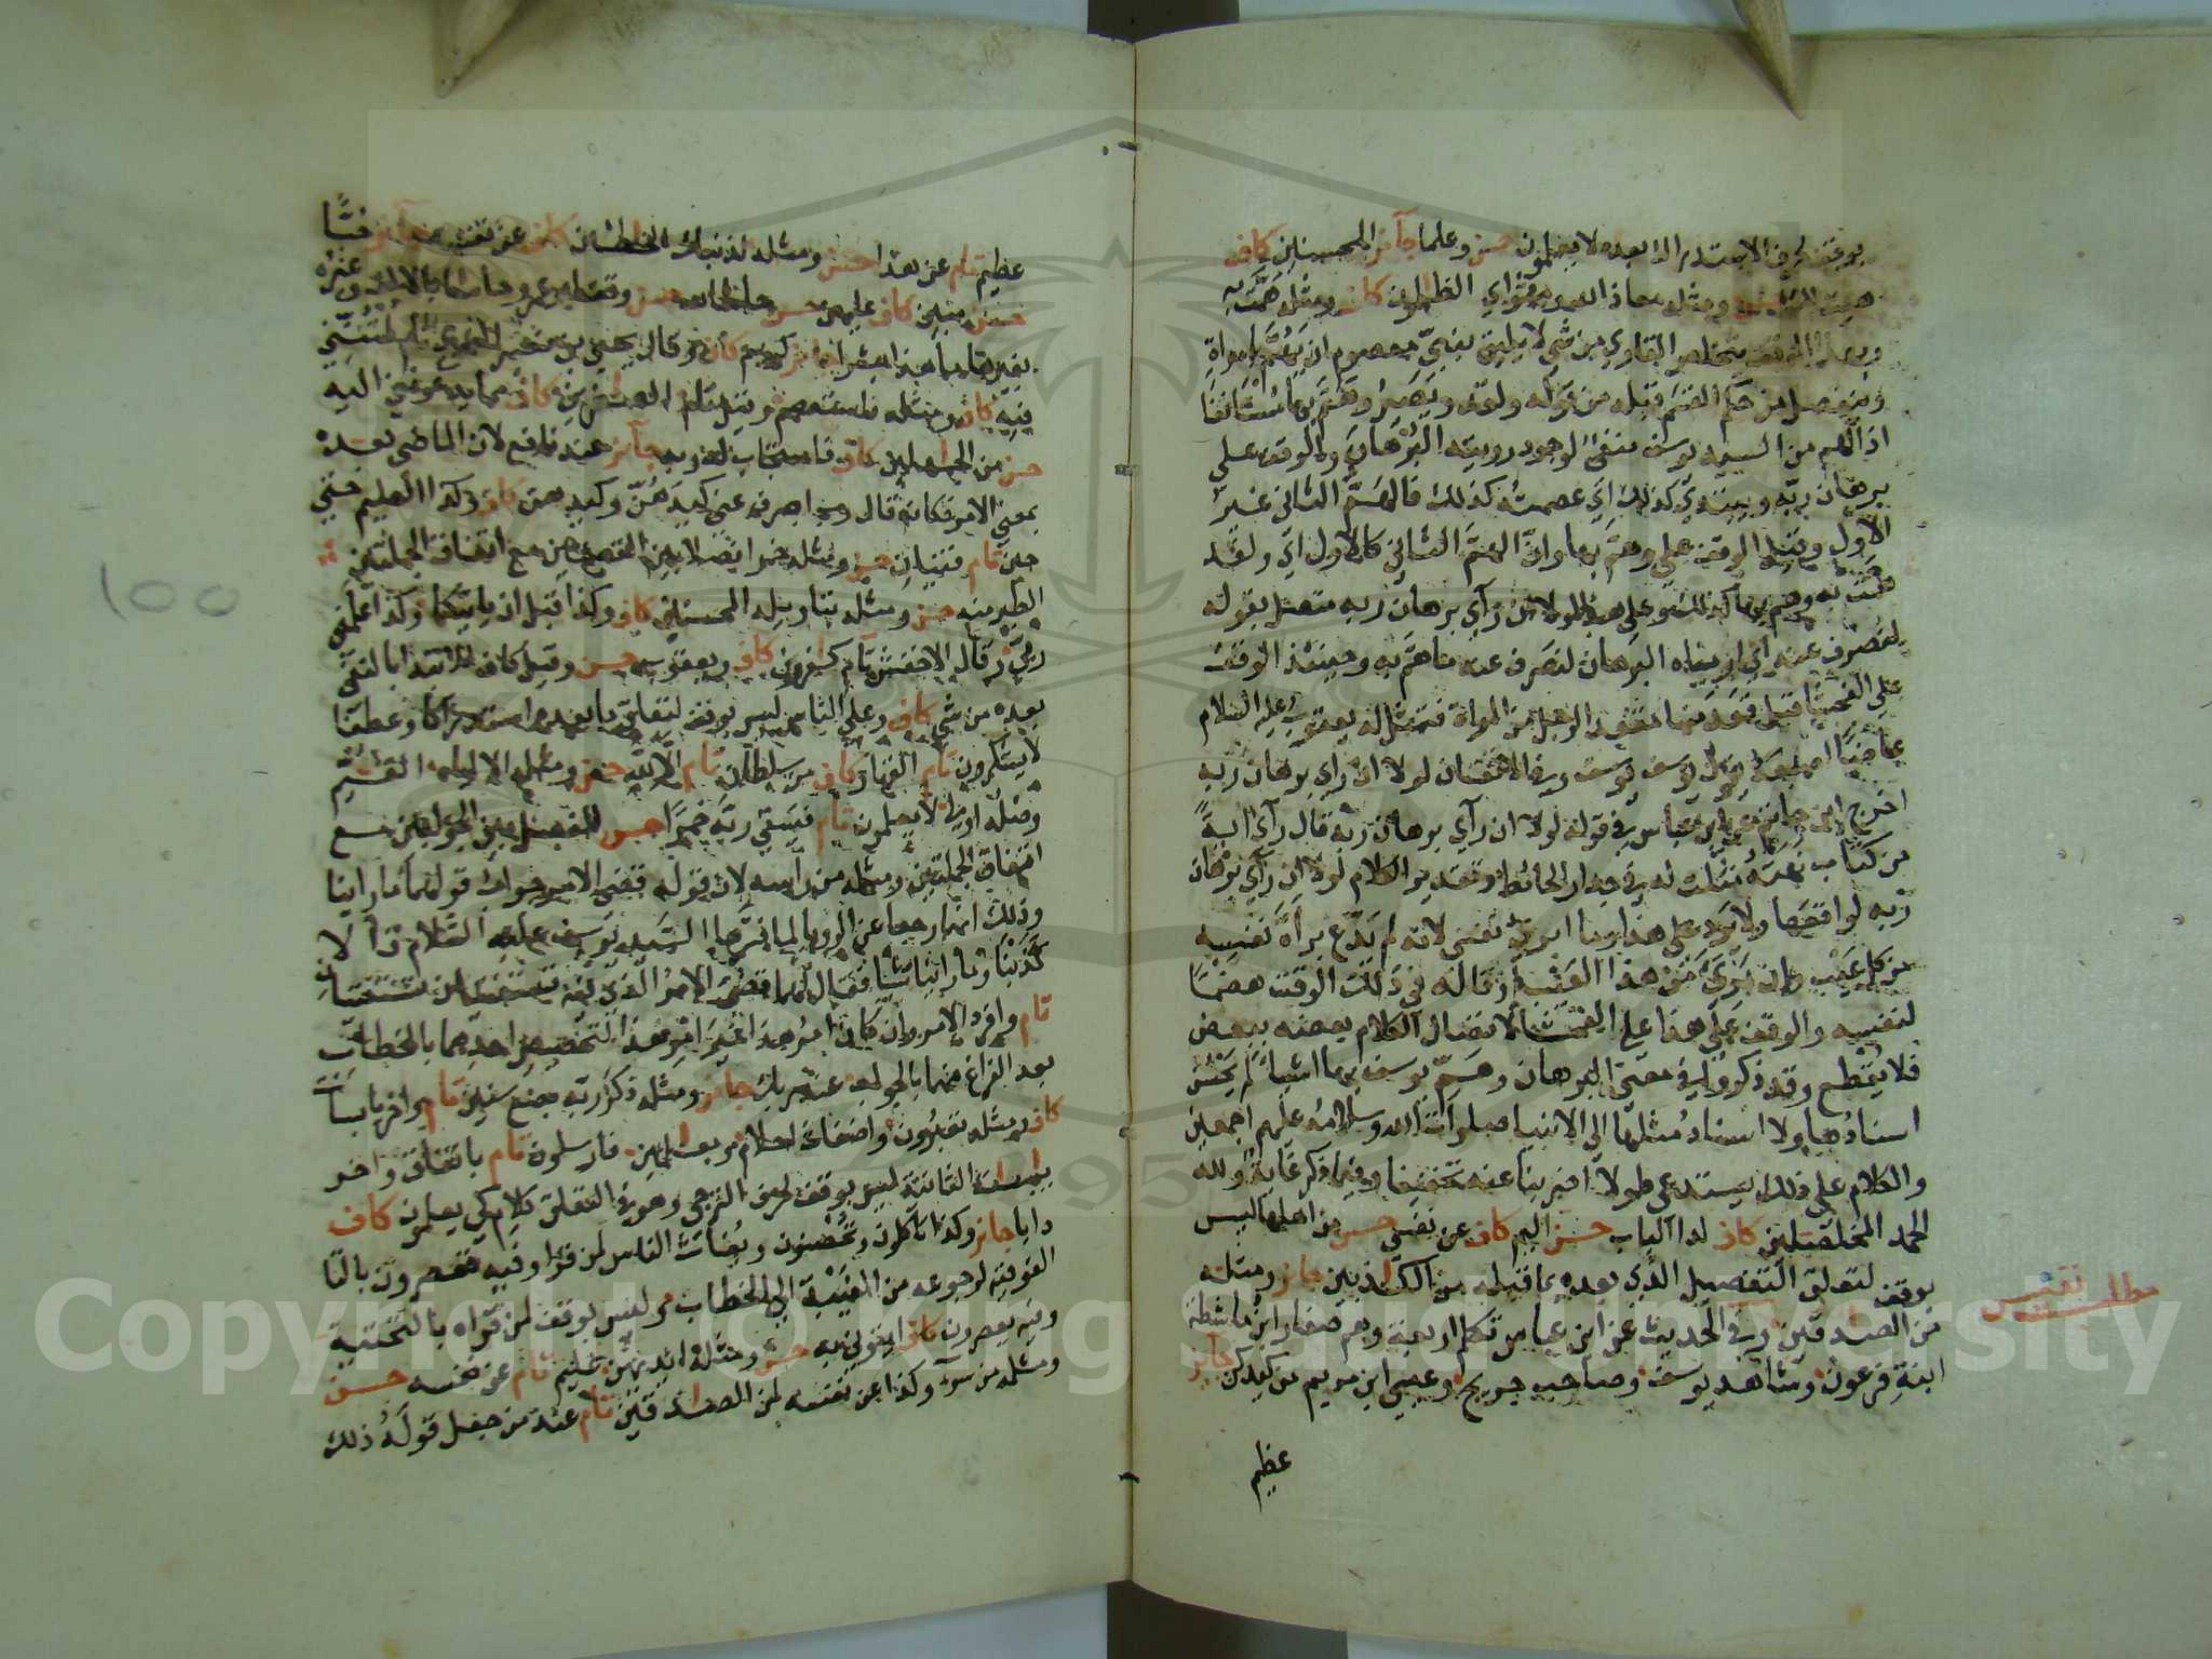 بوقف لحرف الاستدراك بعده لا يعلمون حسن وعلما جائز المحسنين كاف
هيت لك ومثله معاذ الله مثواي الظالمون كاف ومثله همت به
وبهذا الوقف يتخلص القاري من شي لا يليق بنبي معصوم ان يهم بامراة
وينفصل من حكم القسم قبله من قوله ولقد ويصير وهم بها مستانفا
اذ الهم من السيد يوسف منفي لوجود رويته البرهان والوقف على
برهان ربه ويبتدي كذلك اي عصمته كذلك فالهم الثاني غير
الاول وقيل الوقف على وهم بها وان الهم الثاني كالاول اي ولقد
همت به وهم بها كذلك وعلى هذا لولا ان راي برهان ربه متصل بقوله
لنصرف عنه اي اريناه البرهان لنصرف عنه ما هم به وحينئذ الوقف
على الفحشا قيل قعد منها مقعد الرجل من المراة فتمثل له يعقوب عليه السلام
عاضا اصبعه يقول يوسف يوسف وفي الاتقان لولا ان راي برهان ربه
اخرج ابن حاتم عن ابن عباس في قوله لولا ان راي برهان ربه قال راي اية
من كتاب نهته مثلت له في جدار الحائط وتقدير الكلام لولا ان راي برهان
ربه لواقعها ولا يرد على هذا وما ابري نفسي لانه لم يدع براة نفسه
من كل عيب وان بري من هذا العيب او قاله في ذلك الوقت هضما
لنفسه والوقف على هذا على الفحشا لاتصال الكلام بعضه ببعض
فلا يقطع وقد ذكروا في معنى البرهان وهم يوسف بها اشيا لم يحسن
اسنادها ولا اسناد مثلها الى الانبيا صلوات الله وسلامه عليهم اجمعين
والكلام على ذلك يستدعي طولا اضربنا عنه تخفيفا وفيما ذكر غاية ولله
الحمد المخلصين كاف لدا الباب حسن اليم كاف عن نفسي حسن من اهلها ليس
بوقف لتعلق التفصيل الذي بعده بما قبله من الكاذبين جائز ومثله
من الصادقين وفي الحديث عن ابن عباس تكلم اربعة وهم صغار ابن ماشطة
ابنة فرعون وشاهد يوسف وصاحب جريج وعيسى ابن مريم من كيدكن جائز
عظيم
مطلب نفيس
عظيم تام عن هذا حسن ومثله لذنبك الخاطئين كاف عن نفسه
حسن مبين كاف عليهن حسن حاش لله حسن
بغيرها ما هذا بشرا جائز كريم كاف وقال يحيى بن نصير النحوي تام لمتنني
فيه كاف ومثله فاستعصم وقيل تام الصاغرين كاف مما يدعونني اليه
حسن من الجاهلين كاف فاستجاب له ربه جائز عند نافع لان الماضي بعده
بمعنى الامر فكانه قال رب اصرف عني كيدهن وكيدهن كاف وكذا العليم حتى
حين تام فتيان حسن ومثله خمرا فصلا بين القصتين مع اتفاق الجملتين
الطير منه حسن ومثله بتاويله المحسنين كاف وكذا قبل ان ياتيكما وكذا علمني
ربي وقال الاخفش تام كفرون كاف ويعقوب حسن وقيل كاف للابتدا بالنفي
بعده من شي كاف وعلى الناس ليس بوقف لتعلق ما بعده استدراكا وعطفا
لا يشكرون تام القهار كاف من سلطان تام الا لله حسن ومثله الا اياه القيم
وصله اولى لا يعلمون تام فيسقي ربه خمرا حسن للفصل بين الجوابين مع
اتفاق الجملتين ومثله من راسه لان قوله قضي الامر جواب قولهما ما راينا
وذلك انهما رجعا عن الرويا لما فسرها السيد يوسف عليه السلام
كذبنا وما راينا شيا فقال لهما قضي الامر الذي فيه تستفتيان تستفتيان
تام وافرد الامر وان كان امر هذا غير امر هذا لتخصيص احدهما بالخطاب
بعد الفراغ منهما بالجواب عند ربك جائز ومثله ذكر ربه بضع سنين تام واخر يابسات
كاف ومثله تعبرون واضغاث احلام وبعالمين فارسلون تام باتفاق واخر
يابسات الثانية ليس بوقف لحرف الترجي وهو في التعلق كلام كي يعلمون كاف
دابا جائز وكذا تاكلون وتحصنون ويغاث الناس لمن قرا وفيه تعصرون بالتا
الفوقية لرجوعه من الغيبة الى الخطاب وليس بوقف لمن قراه بالتحتية
وفيه يعصرون كاف ايتوني به حسن ومثله ايديهن عليم تام عن نفسه حسن
ومثله من سوء وكذا عن نفسه لمن الصادقين تام عند من جعل قوله ذلك